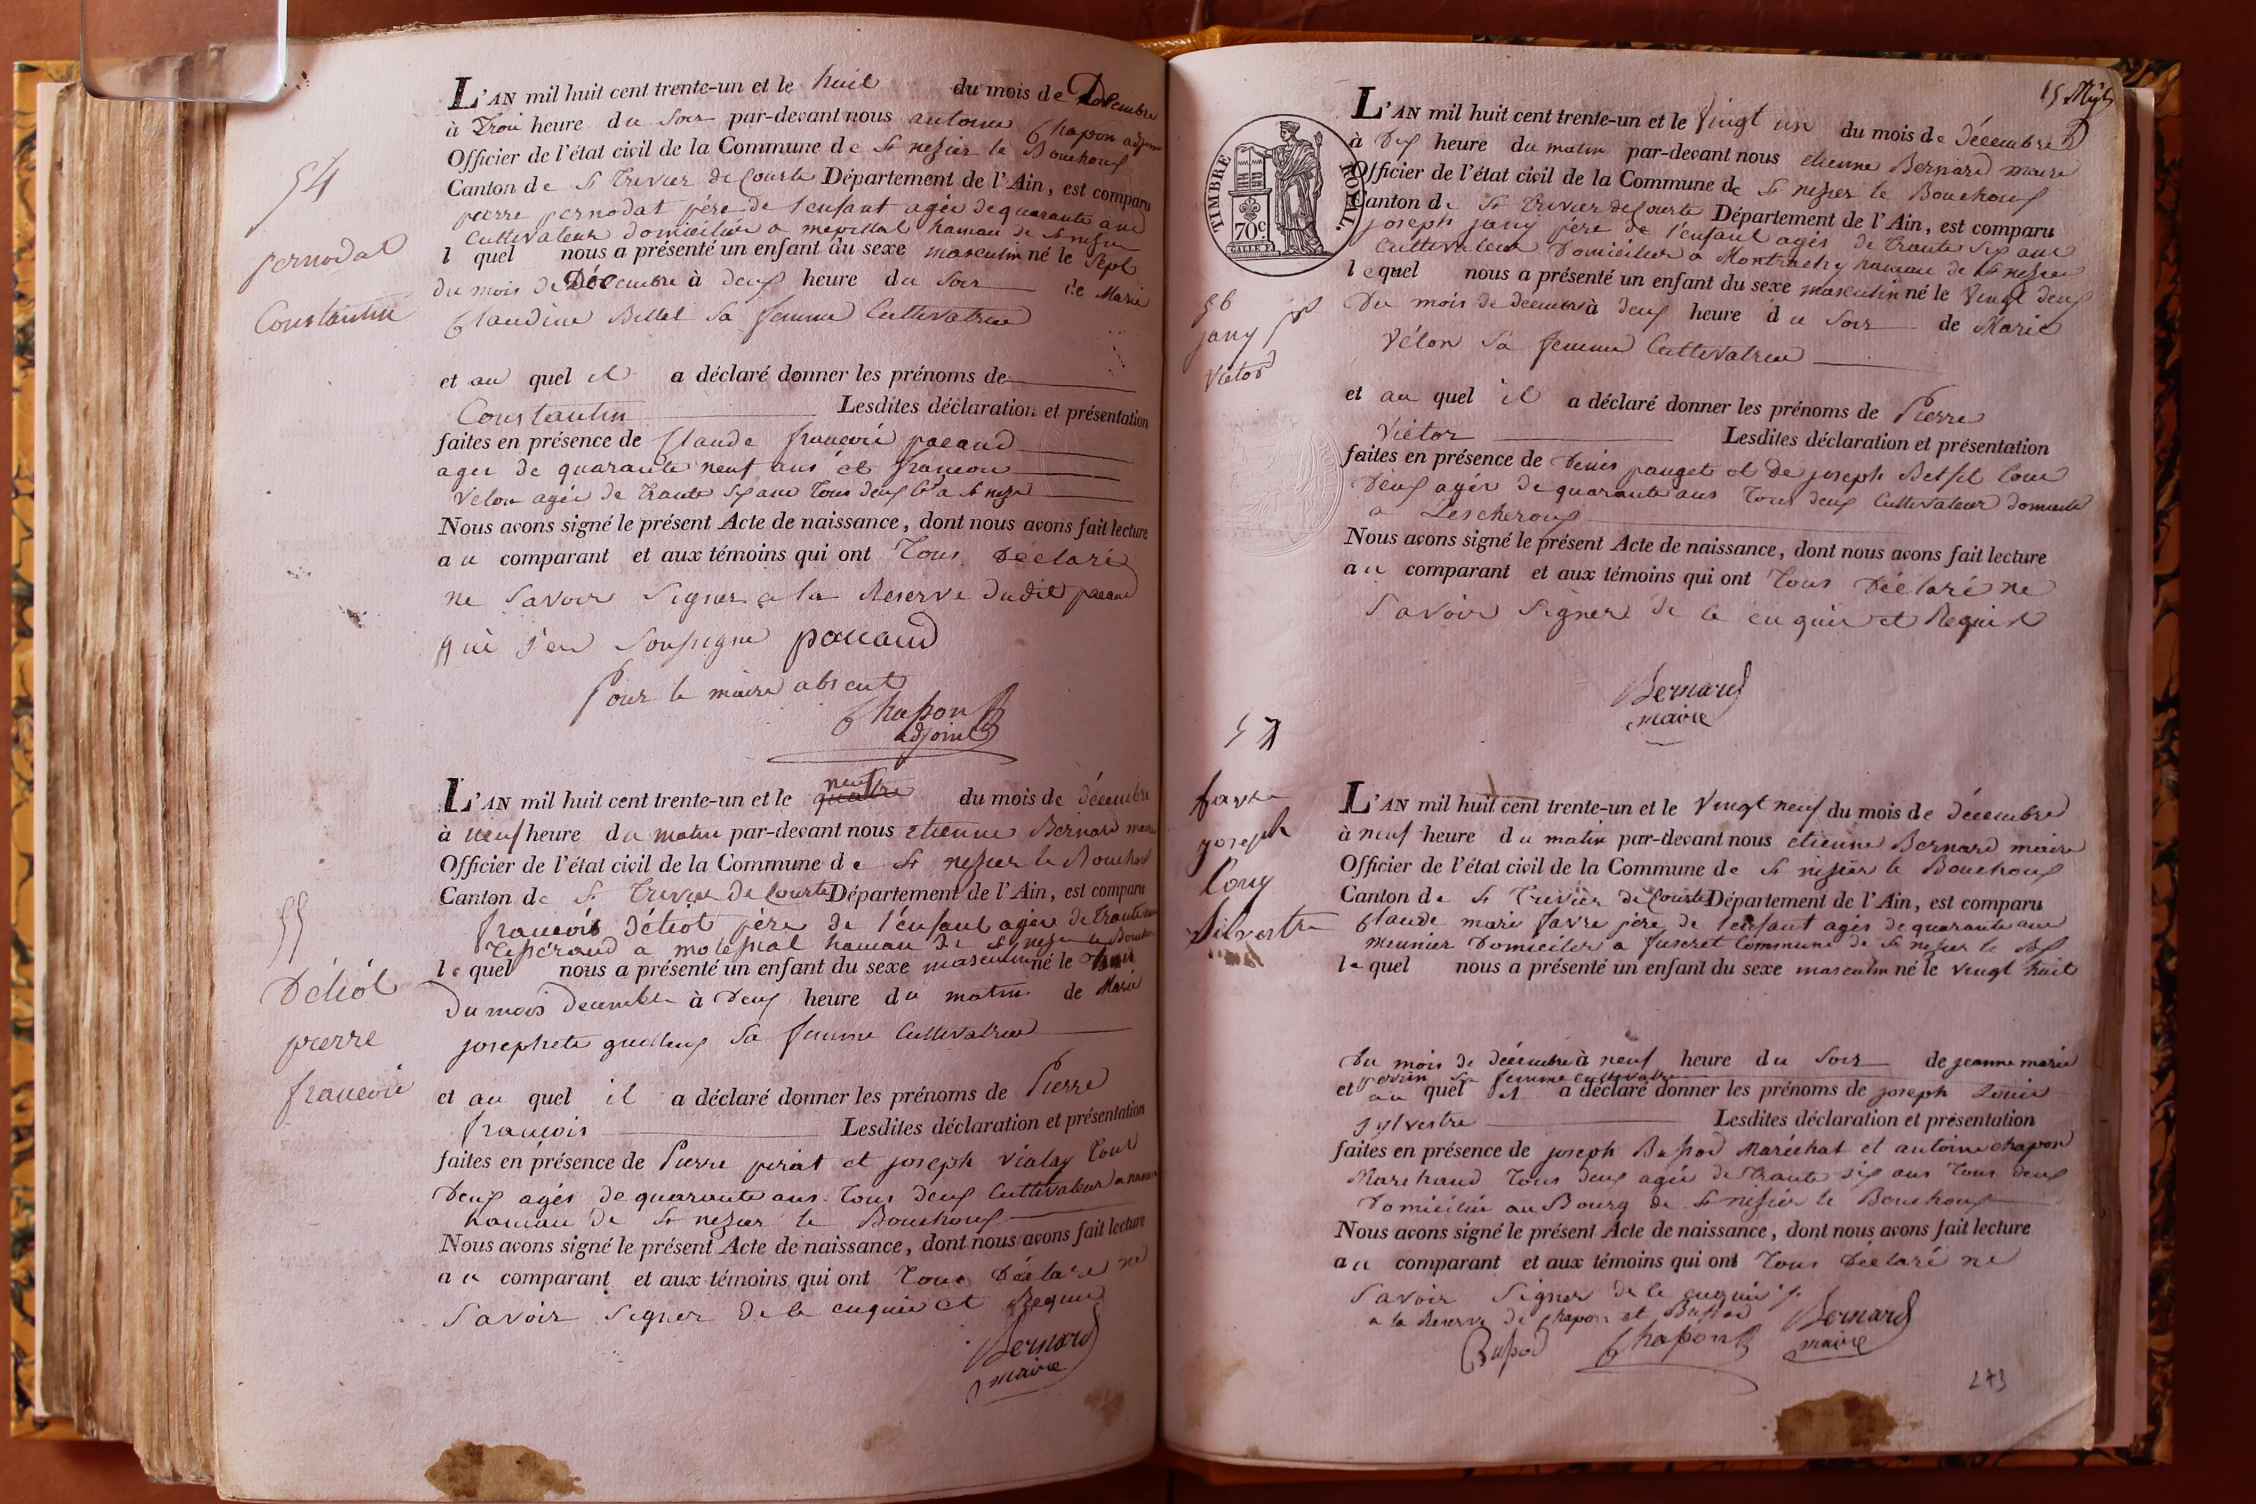 54
pernodat
Constantin
L'AN mil huit cent trente-un et le huit du mois de Décembre
à Troi heure du Soir par-devant nous antoine Chapon adjoint
Officier de l'état civil de la Commune de St nesier le Bouchoux
Canton de St Trivier de Courte Département de l'Ain, est comparu
pierre pernodat père de l'enfant agée de quarante ans
Cultivateur domicilier a hameau de St nesier
lquel nous a présenté un enfant du sexe masculin né le Sept
du mois de Décembre à deux heure du Soir de Marie
Claudine Billet Sa femme Cultivatrice
et au quel il a déclaré donner les prénoms de
Constantin Lesdites déclaration et présentation
faites en présence de Claude françois pacaud
agée de quarante neuf ans et françois
Vélon agée de Trante Six ans Tous deux
Nous avons signé le présent Acte de naissance, dont nous avons fait lecture
au comparant et aux témoins qui ont Tous Déclaré
ne Savoir Signer a la Reserve dudit pacaud
qui s'en Soussigne pacaud
Pour le maire absent
Chapon
adjoint
55
Déliot
pierre
francois
neuf
L'AN mil huit cent trente-un et le quatre du mois de décembre
à neuf heure du matin par-devant nous etienne Bernard maire
Officier de l'état civil de la Commune de St nesier le Bouchoux
Canton de St Trivier de Courte Département de l'Ain, est comparu
françois Déliot père de l'enfant agée de
Tisserand a hameau de St nesier le
lequel nous a présenté un enfant du sexe masculin né le
Du mois decembre à Deux heure du matin de Marie
josephete Sa femme Cultivatrice
et au quel il a déclaré donner les prénoms de Pierre
francois Lesdites déclaration et présentation
faites en présence de Pierre et joseph Vialay Tous
Deux agés de quarante ans Tous deux Cultivateur a
hameau de St nesier le Bouchoux
Nous avons signé le présent Acte de naissance, dont nous avons fait lecture
au comparant et aux témoins qui ont Tous Déclaré ne
Savoir Signer de le enquis et Requis
Bernard
maire
TIMBRE ROYAL.
70c.
56
jany
Victor
L'AN mil huit cent trente-un et le Vingt un du mois de décembre
à Dix heure du matin par-devant nous etienne Bernard maire
Officier de l'état civil de la Commune de St nesier le Bouchoux
Canton de St Trivier de Courte Département de l'Ain, est comparu
joseph jany père de l'enfant agés de Trante Six ans
Cultivateur Domicilier a hameau de St nesier
lequel nous a présenté un enfant du sexe masculin né le Vingt deux
Du mois de decembre à deux heure du Soir de Marie
Vélon Sa femme Cultivatrice
et au quel il a déclaré donner les prénoms de Pierre
Victor Lesdites déclaration et présentation
faites en présence de Denis pauget et de joseph Tous
Deux agés de quarante ans Tous deux Cultivateur
a Lescheroux
Nous avons signé le présent Acte de naissance, dont nous avons fait lecture
au comparant et aux témoins qui ont Tous Déclaré ne
Savoir Signer de le enquis et Requis
Bernard
maire
57
favre
joseph
Louy
Silvestre
L'AN mil huit cent trente-un et le Vingt neuf du mois de décembre
à neuf heure du matin par-devant nous etienne Bernard maire
Officier de l'état civil de la Commune de St nisier le Bouchoux
Canton de St Trivier de Courte Département de l'Ain, est comparu
Claude marie favre père de l'enfant agés de quarante ans
meunier Domicilier a Commune de St nesier le
lequel nous a présenté un enfant du sexe masculin né le vingt huit
Du mois de décembre à neuf heure du Soir de jeanne marie
Sa femme Cultivatrice
et au quel il a déclaré donner les prénoms de joseph Louis
Sylvestre Lesdites déclaration et présentation
faites en présence de joseph Bussod Maréchal et antoine chapon
Marchand Tous deux agée de Trante Six ans Tous deux
Domicilié au Bourg de St nisier le Bouchoux
Nous avons signé le présent Acte de naissance, dont nous avons fait lecture
au comparant et aux témoins qui ont Tous Déclaré ne
Savoir Signer de le enquis
a la Reserve de Chapon et Bussod
Bussod Chapon Bernard
maire
273